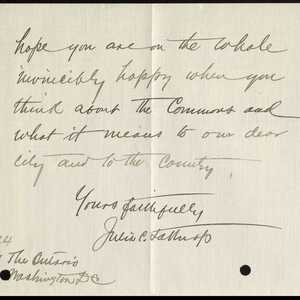 hope you are on the whole
invincibly happy when you
think about the Commons and
what it means to our dear
city and to the Country.
Yours faithfully
Julia C. Lathrop
The Ontario
Washington D C